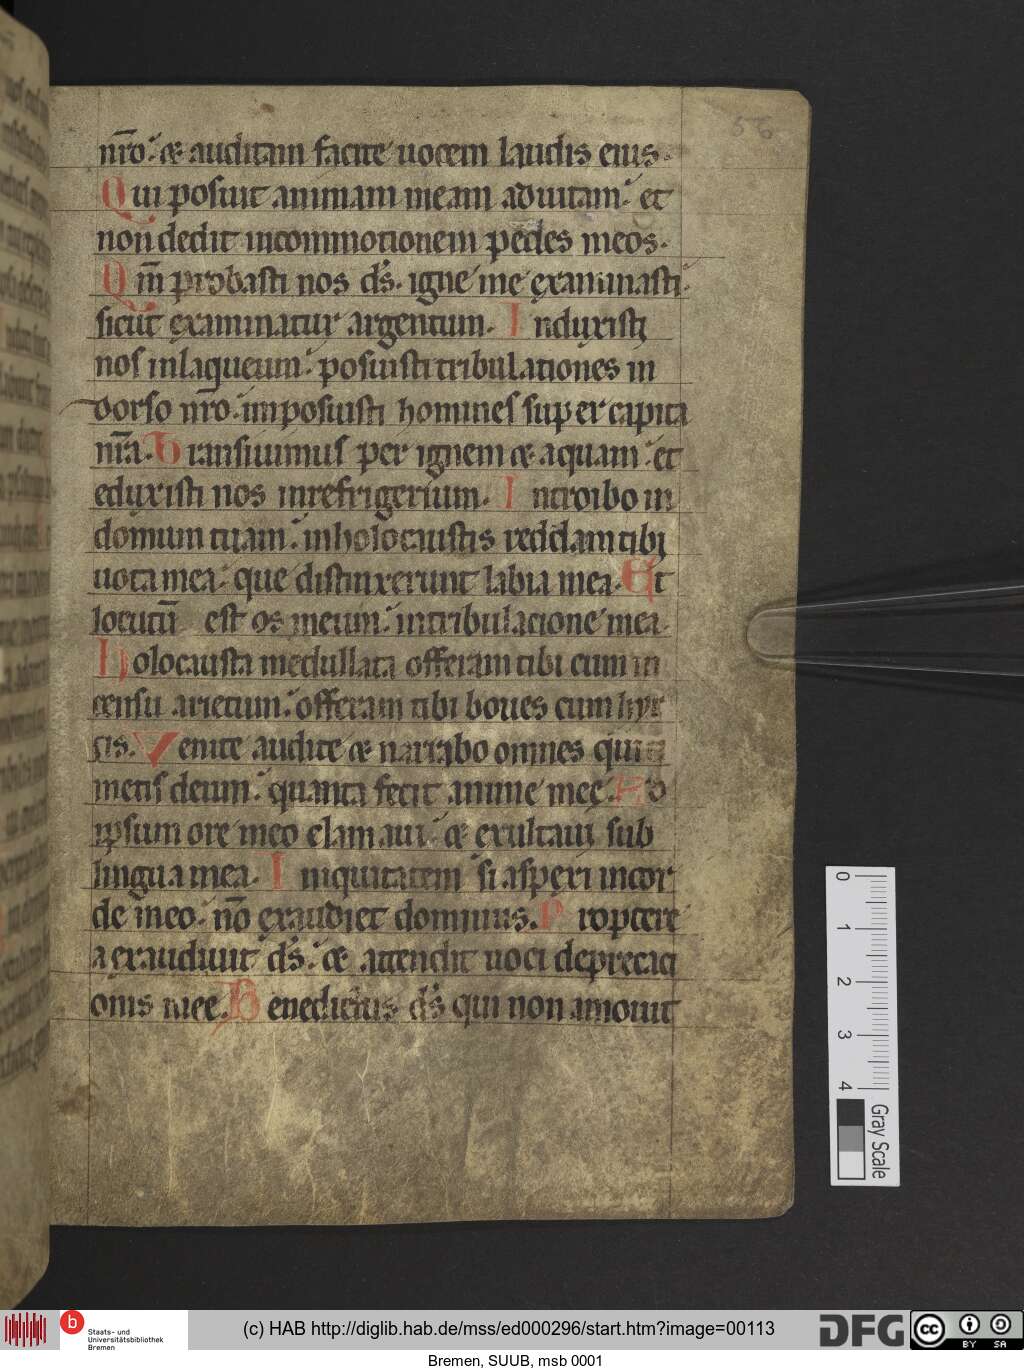 56
nr̄o· & auditam facite uocem laudis eius·
Qui posuit animam meam aduitam· et
non dedit incommotionem pedes meos·
Qm̄ probasti nos ds̄· igne me examinasti·
sicut examinatur argentum· Induxisti
nos inlaqueum· posuisti tribulationes in
dorso nr̄o· imposuisti homines super capita
nr̄a· Transiuimus per ignem & aquam· et
eduxisti nos inrefrigerium· Introibo in
domum tuam· inholocaustis reddam tibi
uota mea· que distinxerunt labia mea· Et
locutū est os meum· intribulacione mea·
Holocausta medullata offeram tibi cum in
censu arietum· offeram tibi boues cum hyr
cis· Venite audite & narrabo omnes qui ti
metis deum· quanta fecit anime meę· Ad
ipsum ore meo clamaui· & exultaui sub
lingua mea· Iniquitatem si asperi incor
de meo· nō exaudiet dominus· Proptere
a exaudiuit ds̄· & attendit uoci deprecati
onis mee· Benedictus ds̄ qui non amouit
0
1
2
3
4
Gray Scale
b
Staats- und
Universitätsbibliothek
Bremen
(c) HAB http://diglib.hab.de/mss/ed000296/start.htm?image=00113
DFG
cc
BY
SA
Bremen, SUUB, msb 0001